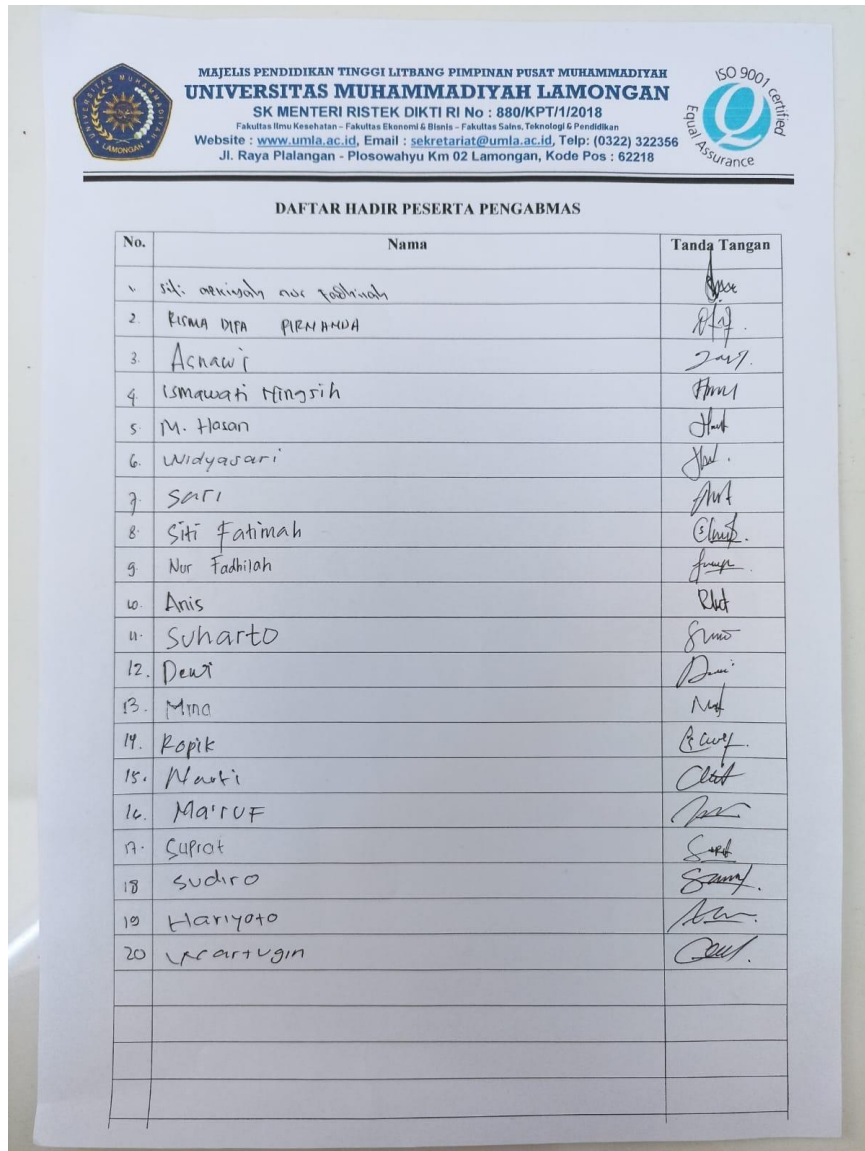 MAJELIS PENDIDIKAN TINGGI LITBANG PIMPINAN PUSAT MUHAMMADIYAH
UNIVERSITAS MUHAMMADIYAH LAMONGAN
SK MENTERI RISTEK DIKTI RI No : 880/KPT/1/2018
Fakultas Ilmu Kesehatan – Fakultas Ekonomi & Bisnis – Fakultas Sains, Teknologi & Pendidikan
Website : www.umla.ac.id, Email : sekretariat@umla.ac.id, Telp: (0322) 322356
Jl. Raya Plalangan - Plosowahyu Km 02 Lamongan, Kode Pos : 62218
UNIVERSITAS MUHAMMADIYAH
LAMONGAN
ISO 9001 Certified
Equal Assurance
DAFTAR HADIR PESERTA PENGABMAS
No. Nama Tanda Tangan
1. Siti nur
2. RISMA DIPA PIRNANDA
3. Asnawi
4. Ismawati Ningsih
5. M. Hasan
6. Widyasari
7. Sari
8. Siti Fatimah
9. Nur Fadhilah
10. Anis
11. Suharto
12. Dewi
13.
14. Ropik
15.
16. Ma'ruf
17. Suprat
18 Sudiro
19 Hariyoto
20